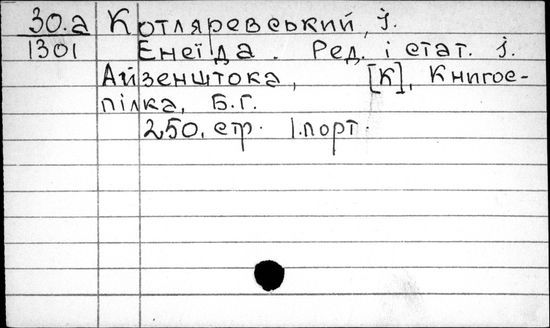 30.а Котляревський, І.
1301 Енеїда. Ред. і стат. І.
Айзенштока, [К], Книгос-
пілка, Б.Г.
250. стр. 1.порт.